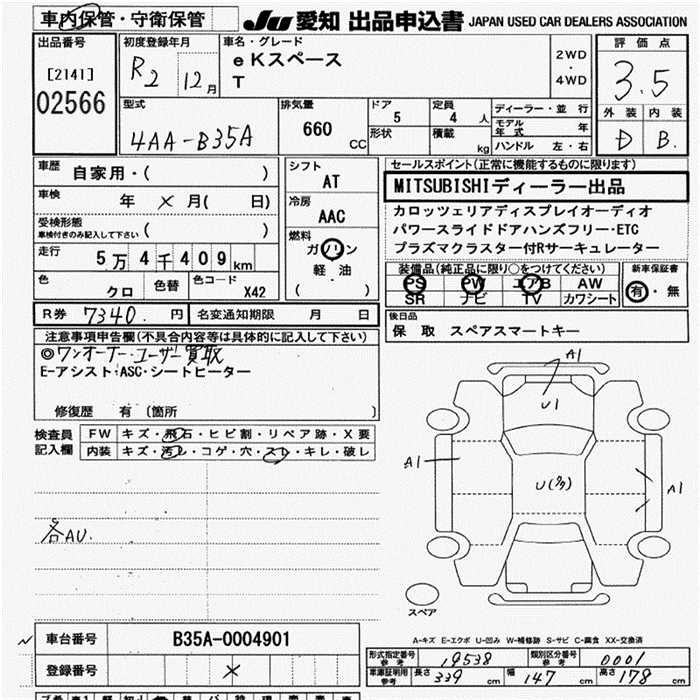 車内保管・守衛保管
JU 愛知 出品申込書 JAPAN USED CAR DEALERS ASSOCIATION
出品番号
[2141]
02566
初度登録年月
R2 12月
車名・グレード
eKスペース
T
2WD
・
4WD
評価点
3.5
外装 内装
D B.
型式
4AA-B35A
排気量
660 CC
ドア
5
形状
定員
4 人
積載
kg
ディーラー・並行
モデル年式 年
ハンドル 左・右
車歴
自家用・( )
車検
年 × 月( 日)
受検形態
車検付きのみ記入して下さい ( )
走行
5万4千409km
色
クロ
色替
色コード
X42
シフト
AT
冷房
AAC
燃料
ガソリン
軽・油
( )
セールスポイント(正常に機能するものに限ります)
MITSUBISHIディーラー出品
カロッツェリアディスプレイオーディオ
パワースライドドアハンズフリー・ETC
プラズマクラスター付Rサーキュレーター
装備品(純正品に限り○をつけてください)
PS PW エアB AW
SR ナビ TV カワシート
新車保証書
有・無
R券 7340. 円
名変通知期限 月 日
後日品
保 取 スペアスマートキー
注意事項申告欄(不具合内容等は具体的に記入して下さい)
◎ワンオーナー・ユーザー買取
E-アシスト・ASC・シートヒーター
修復歴 有 〔箇所 〕
検査員記入欄
FW キズ・飛石・ヒビ割・リペア跡・X要
内装 キズ・汚レ・コゲ・穴・スレ・キレ・破レ
各AU.
A1
U1
A1
U(多)
A1
スペア
A-キズ E-エクボ U-凹み W-補修跡 S-サビ C-腐食 XX-交換済
車台番号 B35A-0004901
登録番号 ×
形式指定番号 参考 19538
類別区分番号 参考 0001
車庫証明用 参考 長さ 339 cm 幅 147 cm 高さ 178 cm